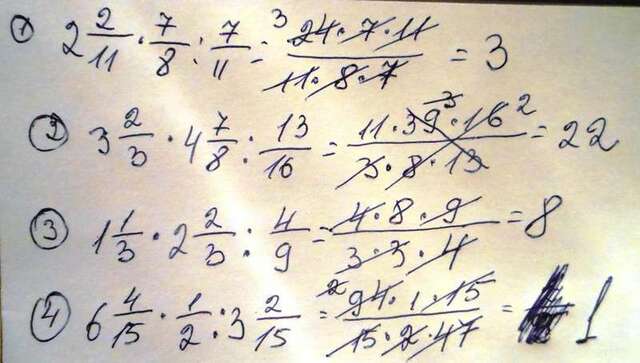 1) 2 2/11 · 7/8 : 7/11 = 24·7·11/11·8·7 3 = 3
2) 3 2/3 · 4 7/8 : 13/16 = 11·39·16/3·8·13 3 2 = 22
3) 1 1/3 · 2 2/3 : 4/9 = 4·8·9/3·3·4 = 8
4) 6 4/15 · 1/2 : 3 2/15 = 94·1·15/15·2·47 2 = 1